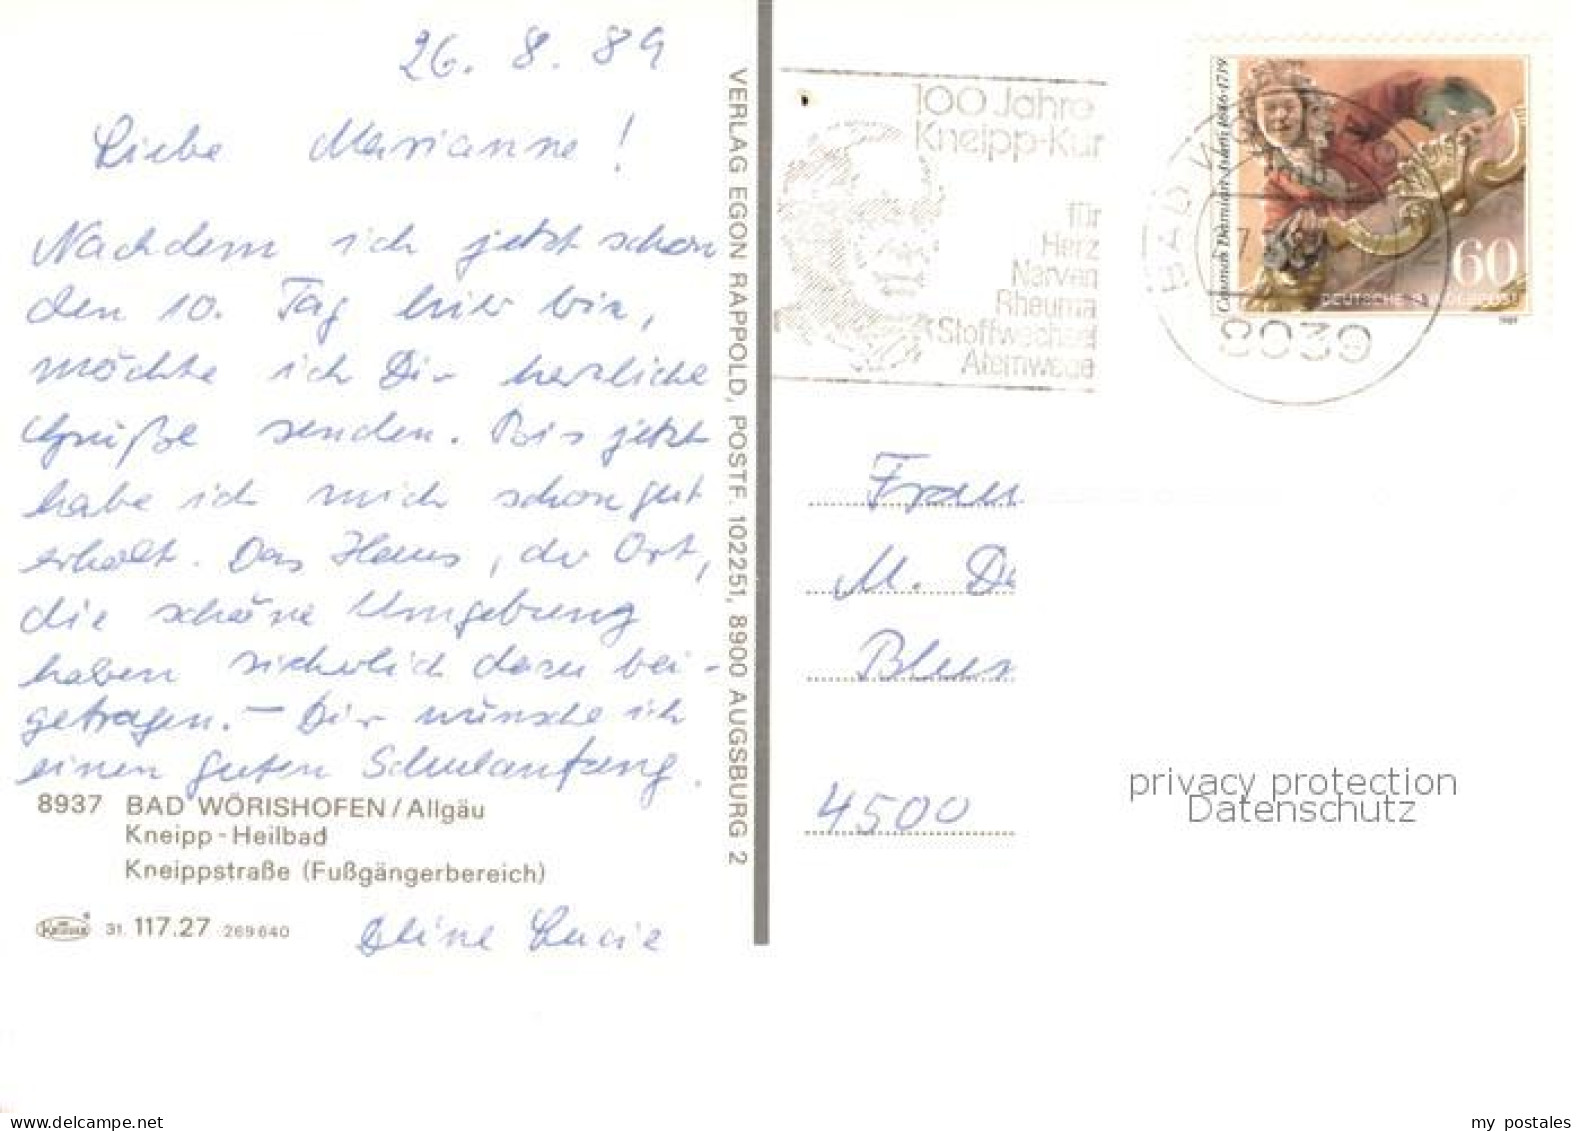 26. 8. 89
Liebe Marianne!
Nachdem ich jetzt schon
den 10. Tag hier bin,
möchte ich Dir herzliche
Grüße senden. Bis jetzt
habe ich mich schon gut
erholt. Das Haus, der Ort,
die schöne Umgebung
haben sicherlich dazu bei-
getragen. – Dir wünsche ich
einen guten Schulanfang.
8937 BAD WÖRISHOFEN/Allgäu
Kneipp-Heilbad
Kneippstraße (Fußgängerbereich)
31. 117.27 269640
Deine Lucie
VERLAG EGON RAPPOLD, POSTF. 102251, 8900 AUGSBURG 2
100 Jahre
Kneipp-Kur
für
Herz
Nerven
Rheuma
Stoffwechsel
Atemwege
BAD WÖ
8939
Cosmas Damian Asam 1686-1739
60
DEUTSCHE BUNDESPOST
1989
Frau
M. De
4500
privacy protection
Datenschutz
my postales